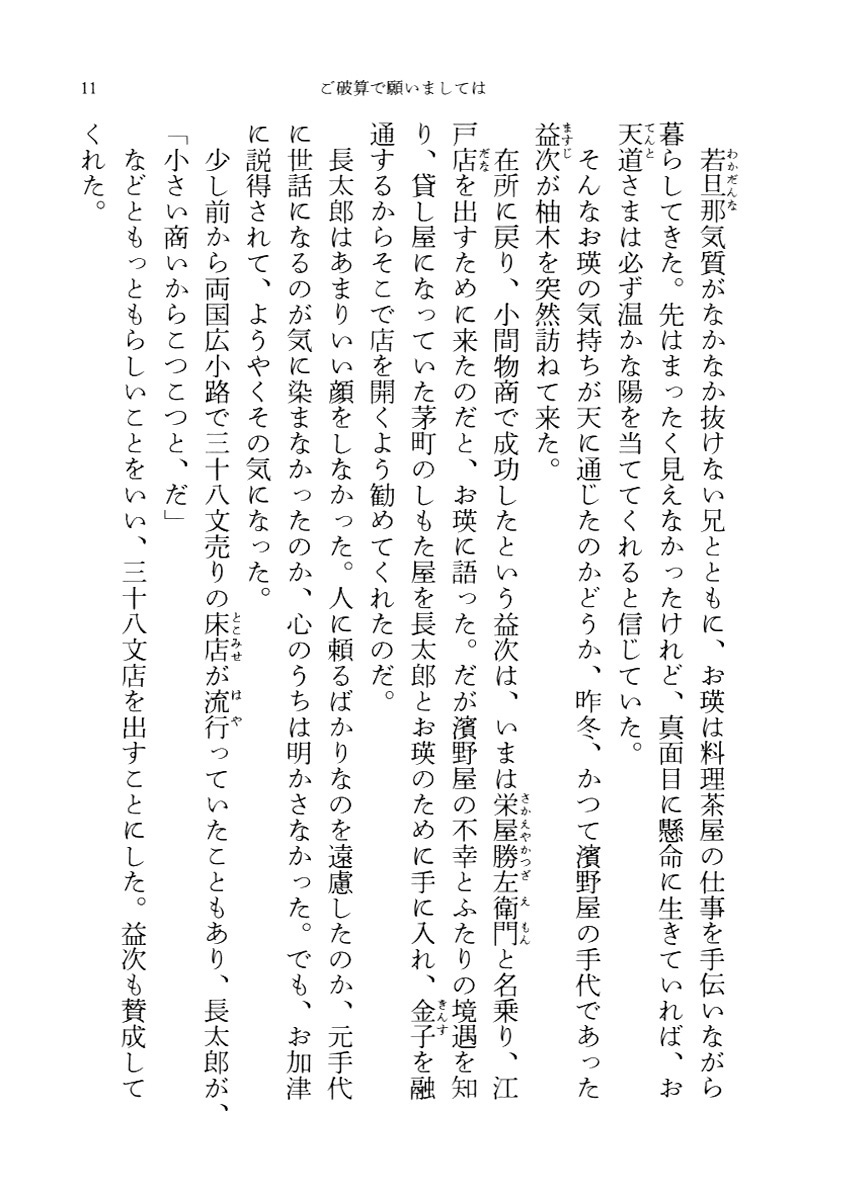 11
ご破算で願いましては
若旦那気質がなかなか抜けない兄とともに、お瑛は料理茶屋の仕事を手伝いながら
暮らしてきた。先はまったく見えなかったけれど、真面目に懸命に生きていれば、お
天道さまは必ず温かな陽を当ててくれると信じていた。
そんなお瑛の気持ちが天に通じたのかどうか、昨冬、かつて濱野屋の手代であった
益次が柚木を突然訪ねて来た。
在所に戻り、小間物商で成功したという益次は、いまは栄屋勝左衛門と名乗り、江
戸店を出すために来たのだと、お瑛に語った。だが濱野屋の不幸とふたりの境遇を知
り、貸し屋になっていた茅町のしもた屋を長太郎とお瑛のために手に入れ、金子を融
通するからそこで店を開くよう勧めてくれたのだ。
長太郎はあまりいい顔をしなかった。人に頼るばかりなのを遠慮したのか、元手代
に世話になるのが気に染まなかったのか、心のうちは明かさなかった。でも、お加津
に説得されて、ようやくその気になった。
少し前から両国広小路で三十八文売りの床店が流行っていたこともあり、長太郎が、
「小さい商いからこつこつと、だ」
などともっともらしいことをいい、三十八文店を出すことにした。益次も賛成して
くれた。